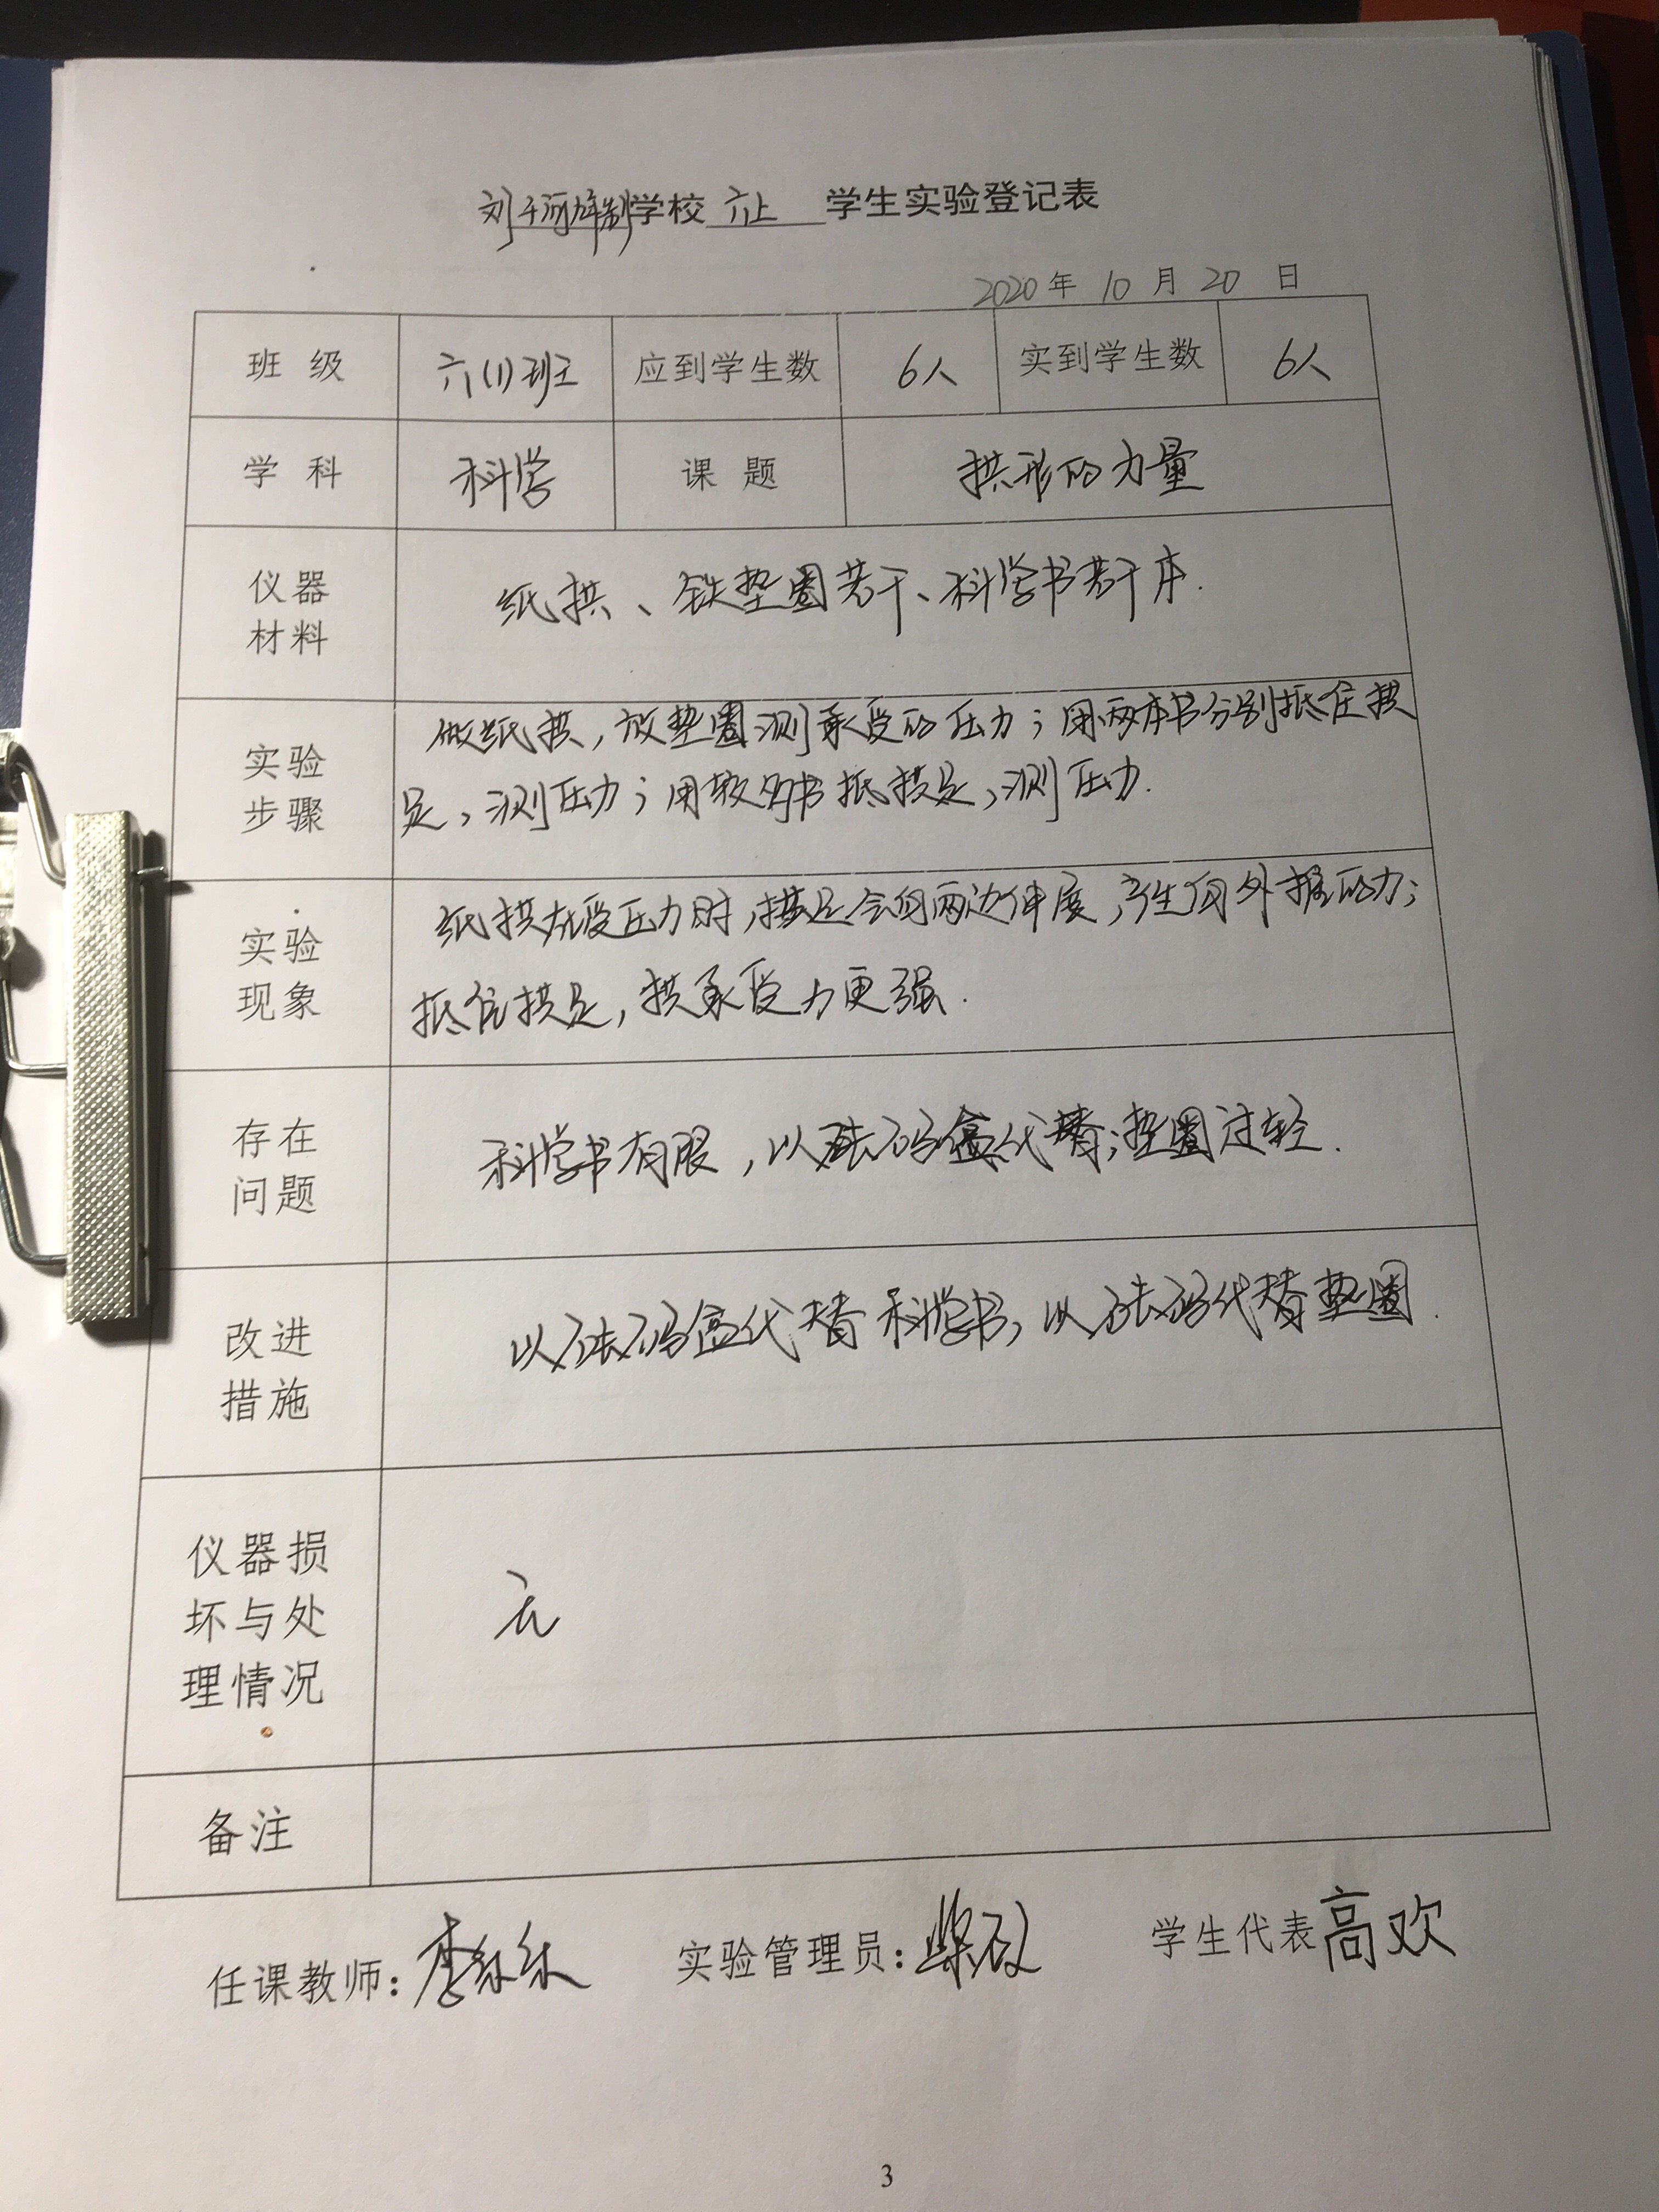 刘千河九年制学校 六上 学生实验登记表
2020年 10 月 20 日
班 级 六(1)班 应到学生数 6人 实到学生数 6人
学 科 科学 课 题 拱形的力量
仪器
材料
纸拱、铁垫圈若干、科学书若干本.
实验
步骤
做纸拱，放垫圈测承受的压力；用两本书分别抵住拱
足，测压力；用较多书抵拱足，测压力.
实验
现象
纸拱在受压力时，拱足会向两边伸展，产生向外推的力；
抵住拱足，拱承受力更强.
存在
问题
科学书有限，以砝码盒代替；垫圈过轻.
改进
措施
以砝码盒代替科学书，以砝码代替垫圈.
仪器损
坏与处
理情况
无
备注
任课教师：李
实验管理员：
学生代表 高欢
3